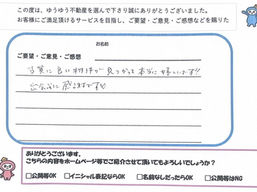 この度は、ゆうゆう不動産を選んで下さり誠にありがとうございました。
お客様にご満足頂けるサービスを目指し、ご要望・ご意見・ご感想などを賜りた
お名前
ご要望・ご意見・ご感想
に良い物件が見つかって本当に嬉しいです!!
に感謝です
ありがとうございます。
こちらの内容をホームページ等でご紹介させて頂いてもよろしいでしょうか?
□公開等OK □イニシャル表記ならOK □名前なしだったらOK □公開等はNG